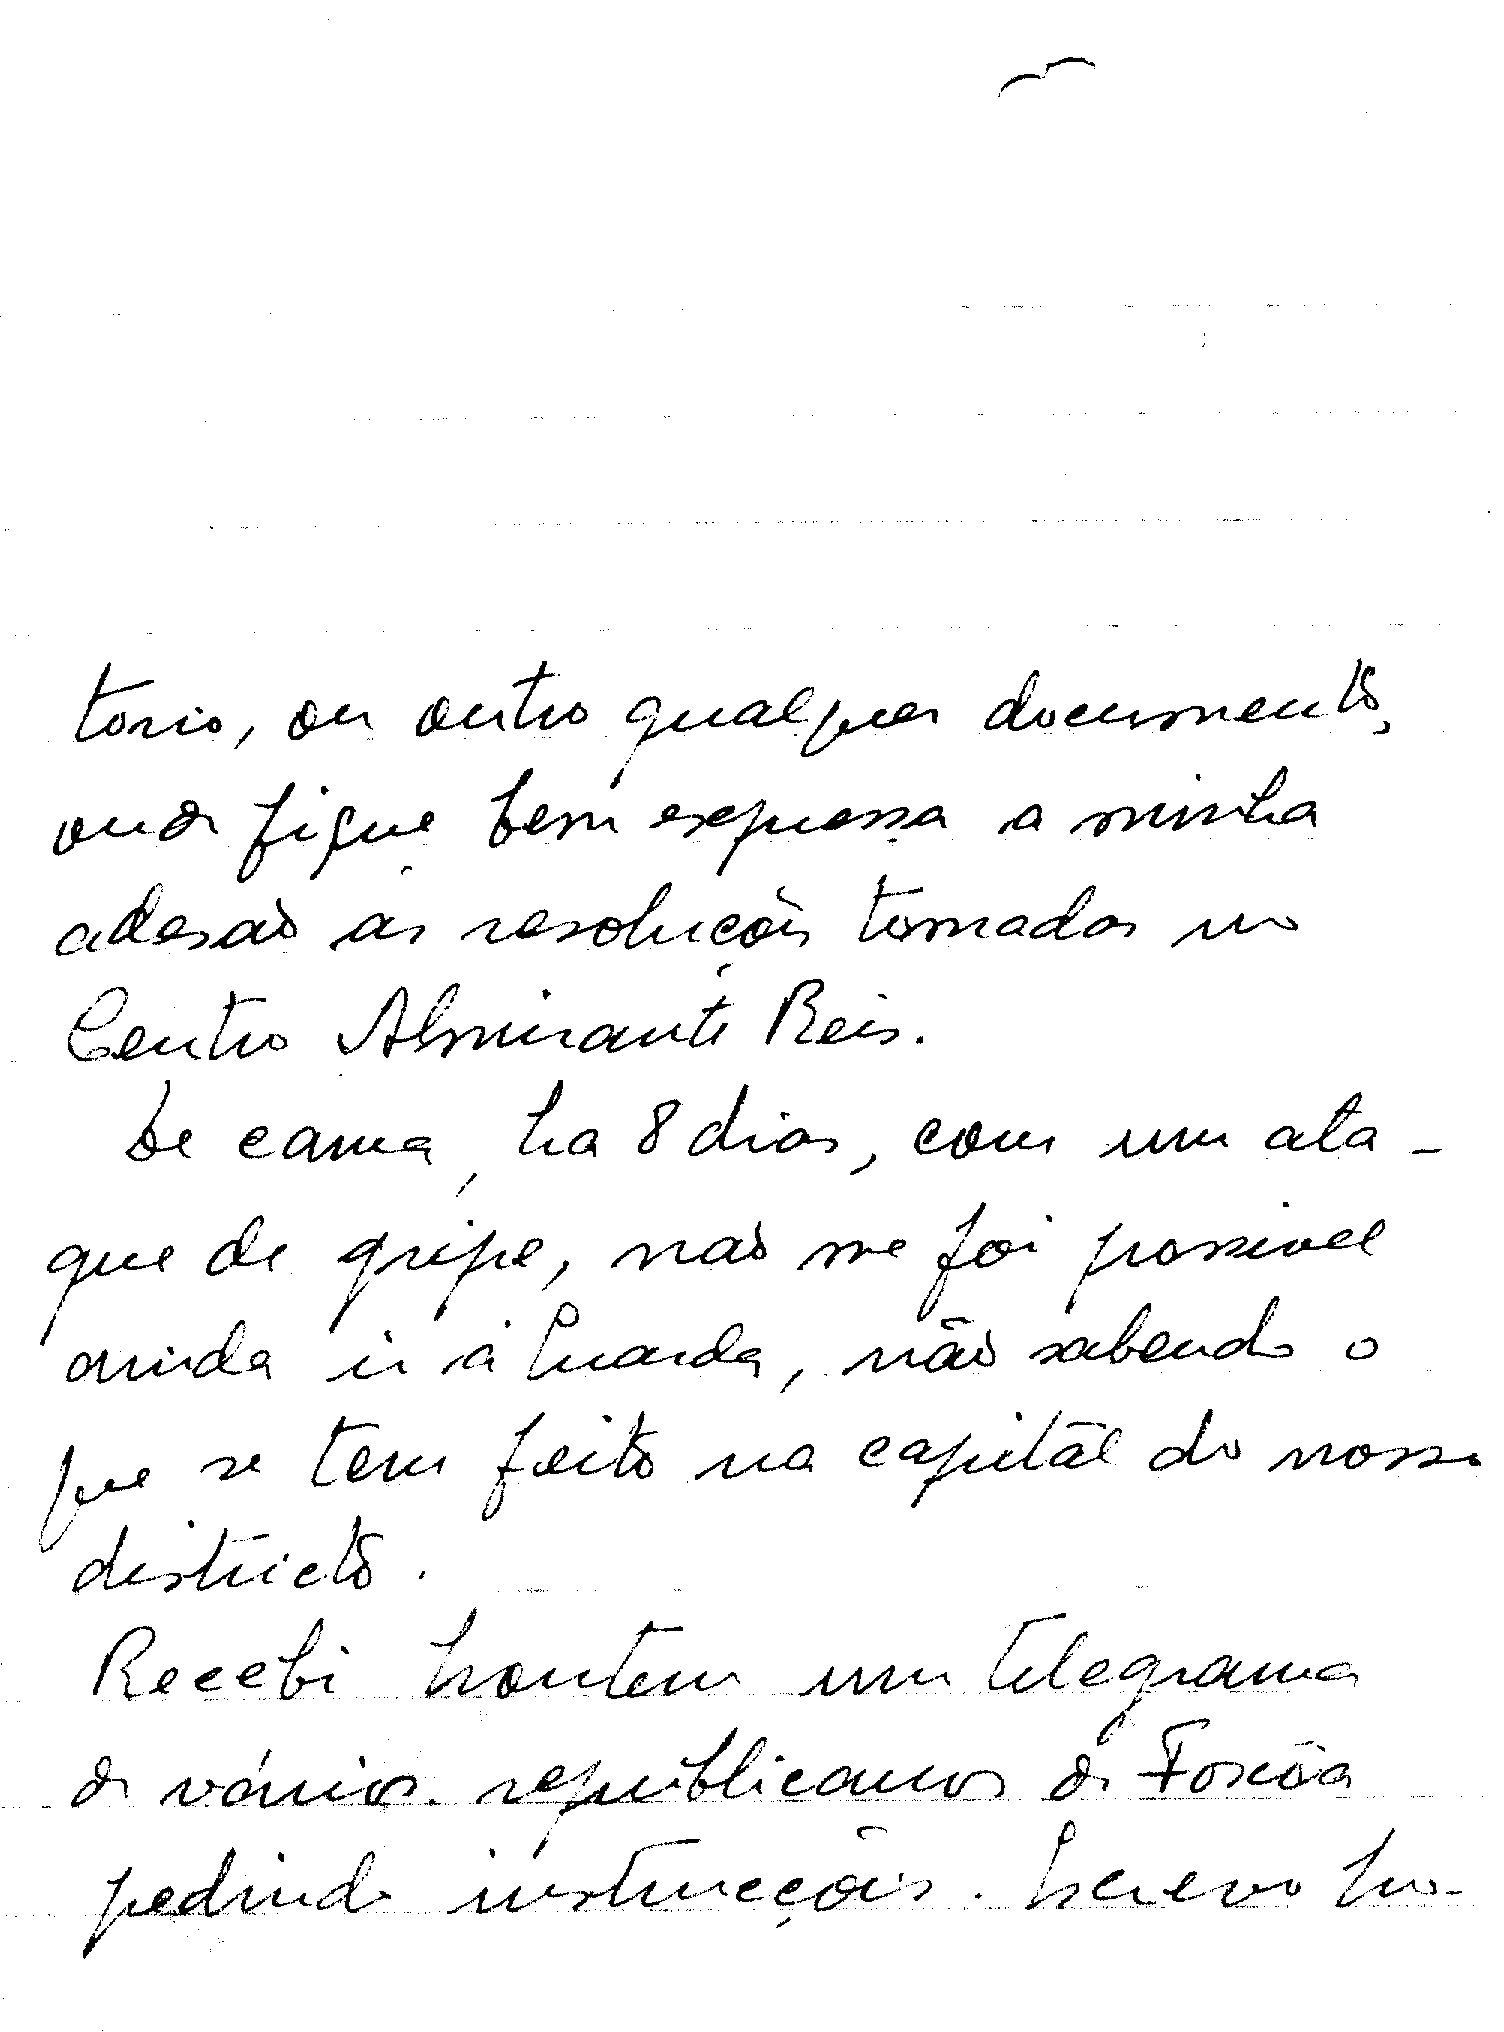 torio, ou outro qualquer documento,
onde fique bem expressa a minha
adesão ás resoluções tomadas no
Centro Almirante Reis.
De cama, ha 8 dias, com um ata-
que de gripe, não me foi possivel
ainda ir á Guarda, não sabendo o
que se tem feito na capital do nosso
districto.
Recebi hontem um telegrama
de vários republicanos de Foscôa
pedindo instrucções. Escrevo ho-